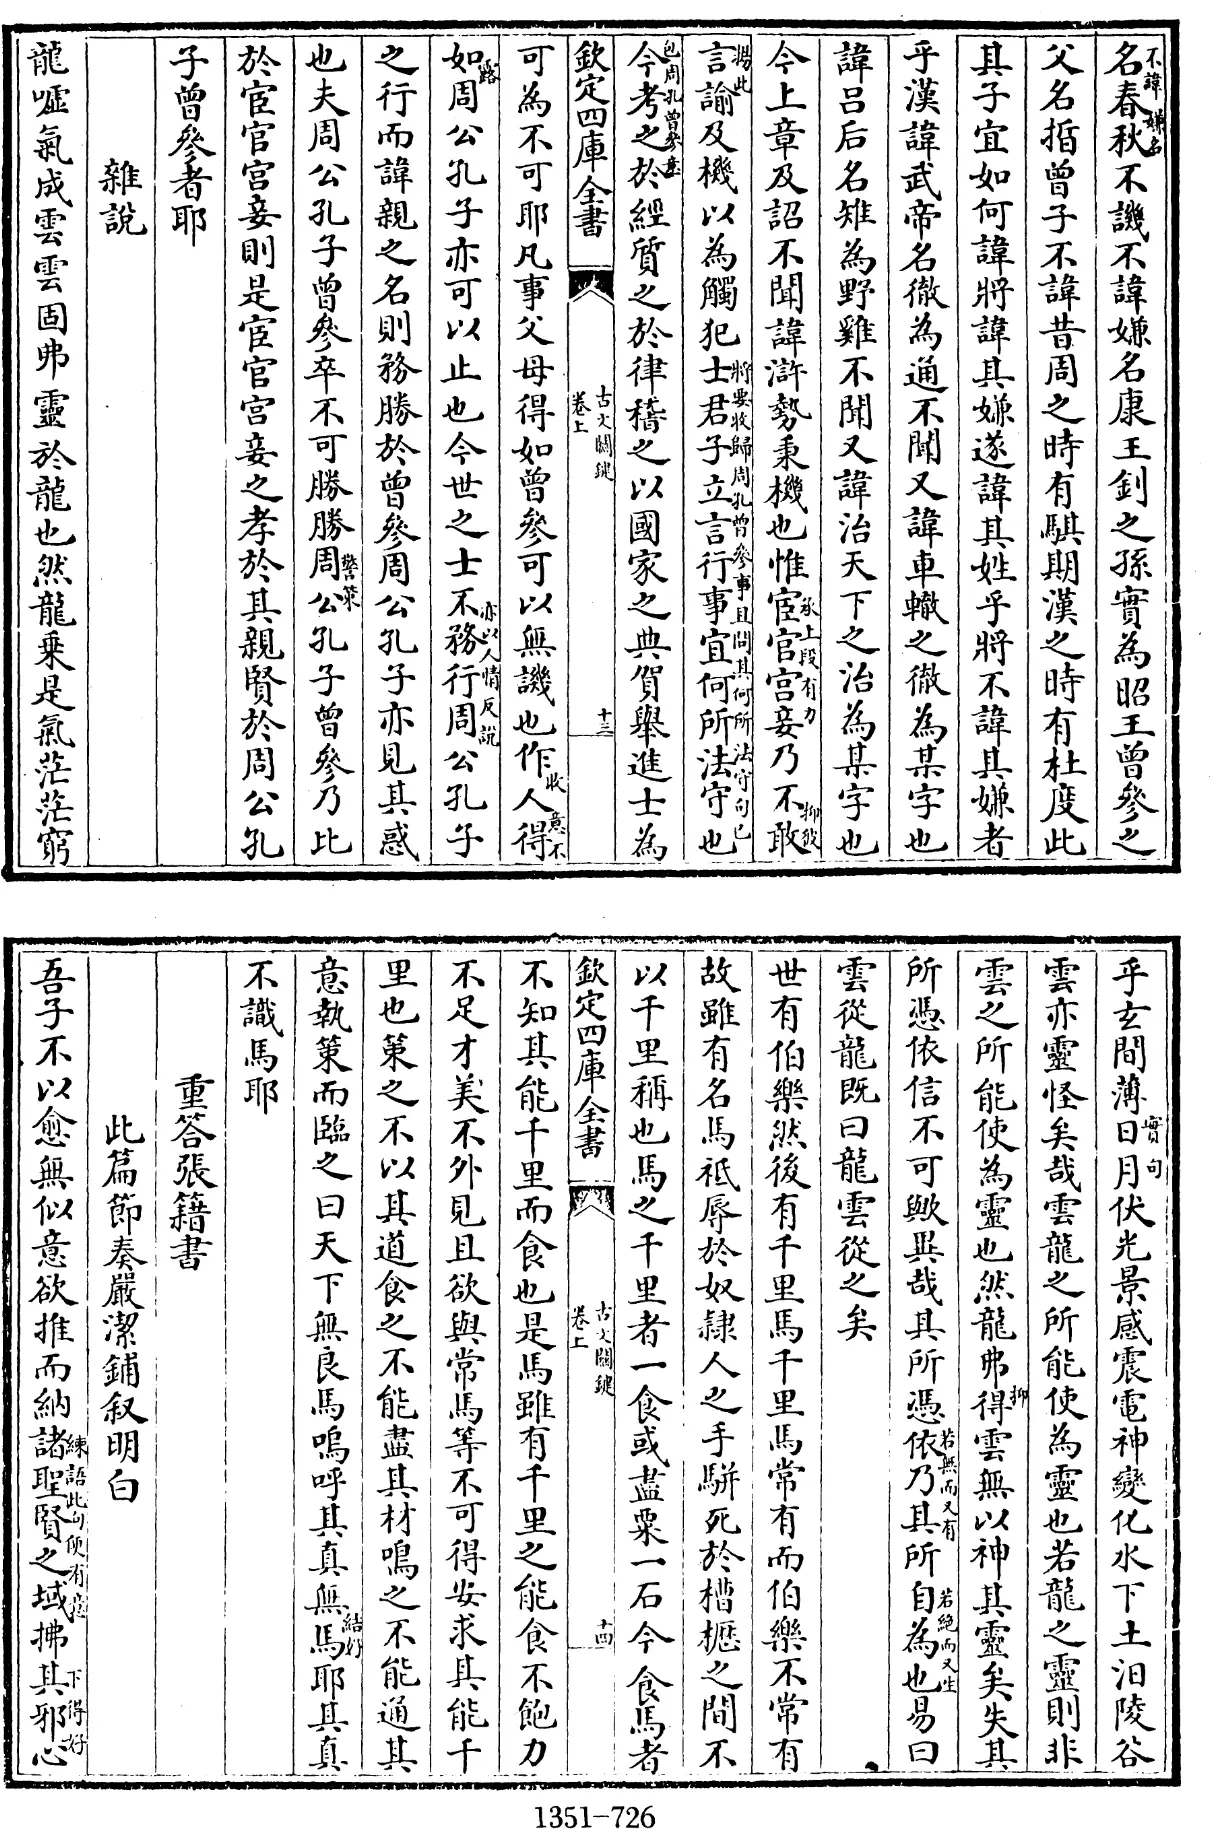 名春秋不譏不諱嫌名康王釗之孫實為昭王曾參之
不諱嫌名
父名㫮曾子不諱昔周之時有騏期漢之時有杜度此
其子宜如何諱將諱其嫌遂諱其姓乎將不諱其嫌者
乎漢諱武帝名徹為通不聞又諱車轍之徹為某字也
諱呂后名雉為野雞不聞又諱治天下之治為某字也
今上章及詔不聞諱滸勢秉機也惟宦官宮妾乃不敢
承上段有力
抑彼
言諭及機以為觸犯士君子立言行事宜何所法守也
揚此
將要收歸周孔曾參事且問其何所法守句已
今考之於經質之於律稽之以國家之典賀舉進士為
包周孔曾參意
欽定四庫全書
古文關鍵
卷上
十三
可為不可耶凡事父母得如曾參可以無譏也作人得
收
意不
如周公孔子亦可以止也今世之士不務行周公孔子
露
亦以人情反說
之行而諱親之名則務勝於曾參周公孔子亦見其惑
也夫周公孔子曾參卒不可勝勝周公孔子曾參乃比
警策
於宦官宮妾則是宦官宮妾之孝於其親賢於周公孔
子曾參者耶
雜說
龍噓氣成雲雲固弗靈於龍也然龍乘是氣茫茫窮
乎玄間薄日月伏光景感震電神變化水下土汩陵谷
實句
雲亦靈怪矣哉雲龍之所能使為靈也若龍之靈則非
雲之所能使為靈也然龍弗得雲無以神其靈矣失其
抑
所憑依信不可歟異哉其所憑依乃其所自為也易曰
若無而又有
若絕而又生
雲從龍既曰龍雲從之矣
世有伯樂然後有千里馬千里馬常有而伯樂不常有
故雖有名馬祗辱於奴隷人之手駢死於槽櫪之間不
以千里稱也馬之千里者一食或盡粟一石今食馬者
欽定四庫全書
古文關鍵
卷上
十四
不知其能千里而食也是馬雖有千里之能食不飽力
不足才美不外見且欲與常馬等不可得安求其能千
里也策之不以其道食之不能盡其材鳴之不能通其
意執策而臨之曰天下無良馬嗚呼其真無馬耶其真
結好
不識馬耶
重答張籍書
此篇節奏嚴潔鋪叙明白
吾子不以愈無似意欲推而納諸聖賢之域拂其邪心
練語此句便有意
下得好
1351-726